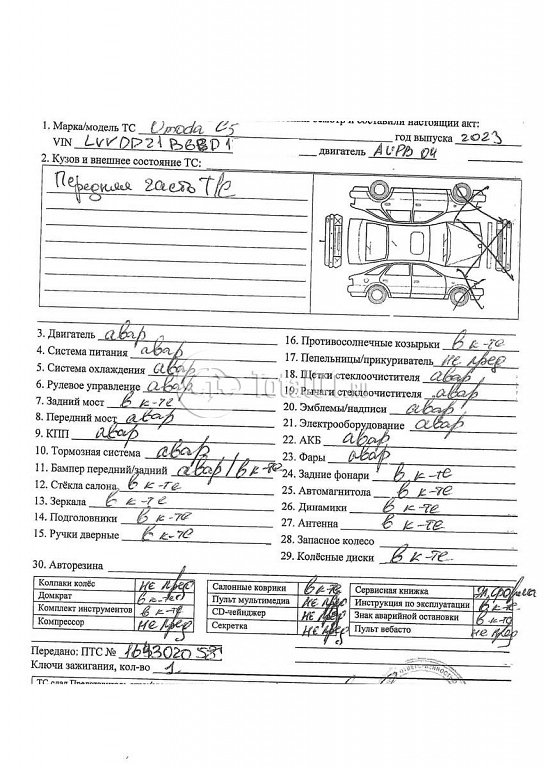 осмотр и составили настоящий акт:
1. Марка/модель ТС Omoda C5
VIN год выпуска 2023
двигатель
2. Кузов и внешнее состояние ТС:
Передняя часть Т/С
3. Двигатель авар
4. Система питания авар
5. Система охлаждения авар
6. Рулевое управление авар
7. Задний мост в к-те
8. Передний мост авар
9. КПП авар
10. Тормозная система авар
11. Бампер передний/задний авар/в к-те
12. Стёкла салона в к-те
13. Зеркала в к-те
14. Подголовники в к-те
15. Ручки дверные в к-те
16. Противосолнечные козырьки в к-те
17. Пепельницы/прикуриватель не пред
18. Щетки стеклоочистителя авар
19. Рычаги стеклоочистителя авар
20. Эмблемы/надписи авар
21. Электрооборудование авар
22. АКБ авар
23. Фары авар
24. Задние фонари в к-те
25. Автомагнитола в к-те
26. Динамики в к-те
27. Антенна в к-те
28. Запасное колесо
29. Колёсные диски в к-те
30. Авторезина
Колпаки колёс не пред
Домкрат в к-те
Комплект инструментов в к-те
Компрессор не пред
Салонные коврики в к-те
Пульт мультимедиа не пред
CD-чейнджер не пред
Секретка не пред
Сервисная книжка
Инструкция по эксплуатации в к-те
Знак аварийной остановки в к-те
Пульт вебасто не пред
Передано: ПТС №
Ключи зажигания, кол-во 1